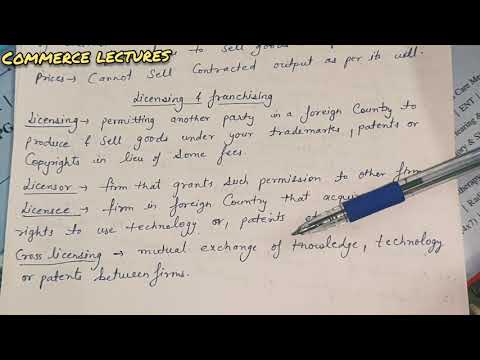 COMMERCE LECTURES
to sell goods
Prices → Cannot Sell Contracted output as per its will.
Licensing & franchising
Licensing → permitting another party in a foreign Country to
produce & Sell goods under your trademarks, patents or
Copyrights in lieu of Some fees.
Licensor → firm that grants such permission to other firm
Licensee → firm in foreign Country that
rights to use technology or, patents
Cross licensing → mutual exchange of knowledge, technology
or patents between firms.
ENT